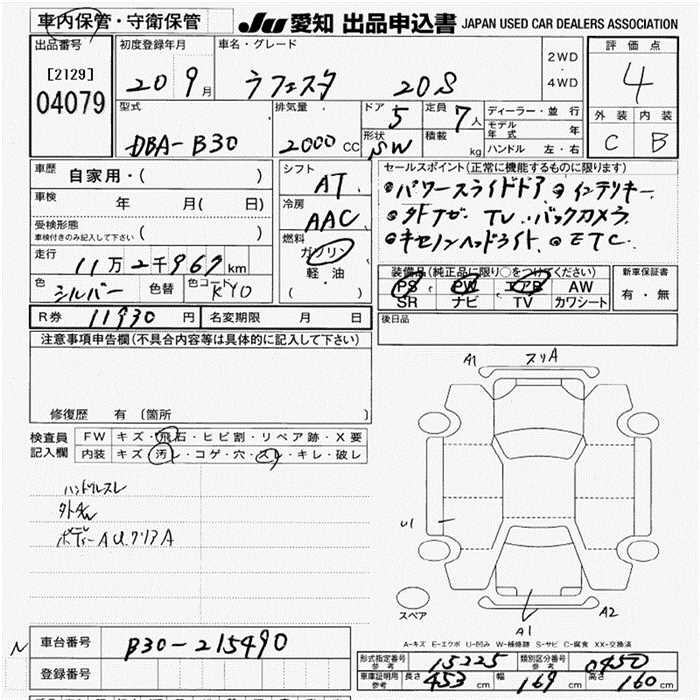 車内保管・守衛保管
JU 愛知 出品申込書 JAPAN USED CAR DEALERS ASSOCIATION
出品番号
[2129]
04079
初度登録年月
20 9月
車名・グレード
ラフェスタ 20S
2WD
・
4WD
評価点
4
外装 内装
C B
型式
DBA-B30
排気量
2000 CC
ドア 5
形状 SW
定員 7人
積載 kg
ディーラー・並行
モデル年式 年
ハンドル 左・右
車歴
自家用・( )
車検
年 月( 日)
受検形態
車検付きのみ記入して下さい ( )
走行
11万2千967km
色 シルバー 色替 色コード KY0
シフト
AT
冷房
AAC
燃料
ガソリン
軽・油
( )
セールスポイント(正常に機能するものに限ります)
●パワースライドドア ●インテリキー
●外アルミ TV バックカメラ
●キセノンヘッドライト ●ETC
装備品(純正品に限り○をつけてください)
PS PW エアB AW
SR ナビ TV カワシート
新車保証書
有・無
後日品
R券 11930円 名変期限 月 日
注意事項申告欄(不具合内容等は具体的に記入して下さい)
修復歴 有〔箇所 〕
検査員
記入欄
FW キズ・飛石・ヒビ割・リペア跡・X要
内装 キズ・汚レ・コゲ・穴・スレ・キレ・破レ
ハンドルスレ
ボデーAU
A1 スリA
U1
A1
A2
スペア
A-キズ E-エクボ U-凹み W-補修跡 S-サビ C-腐食 XX-交換済
N
車台番号
B30-215490
登録番号
形式指定番号
参考
15225
類別区分番号
参考
0450
車庫証明用
参考
長さ 453cm 幅 169cm 高さ 160cm